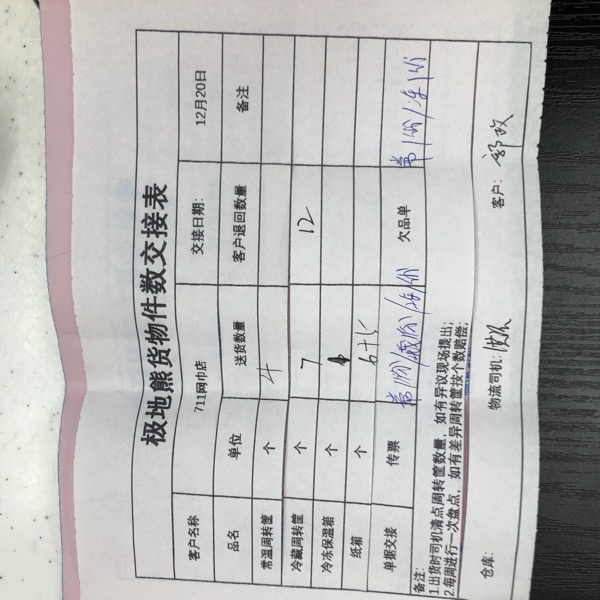 极地熊货物件数交接表
客户名称 711网巾店 交接日期: 12月20日
品名 单位 送货数量 客户退回数量 备注
常温周转筐 个 4
冷藏周转筐 个 7 12
冷冻保温箱 个
纸箱 个 6+5
单据交接 传票 欠品单
备注:
1.出货时司机清点周转筐数量,如有异议现场提出;
2.每周进行一次盘点,如有差异周转筐按个数赔偿;
仓库: 物流司机: 客户: